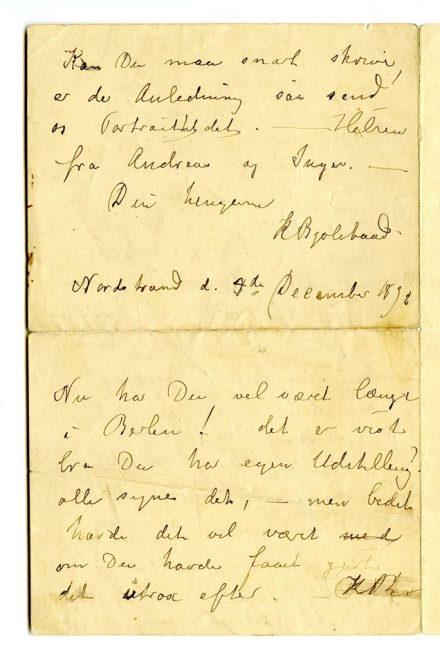 Kan Du maa snart skrive,
er de Anledning saa send
os Portraitet det. — Hilsen
fra Andreas og Inger. —
Din hengivne
K Bjølstaad
Nordstrand d. 4de December 1892
Nu har Du vel været længe
i Berlin! det er vist
bra Du har egen Udstilling?
alle synes det, — men bedst
havde det vel været med
om Du havde faaet gjort
det strax efter. — K B